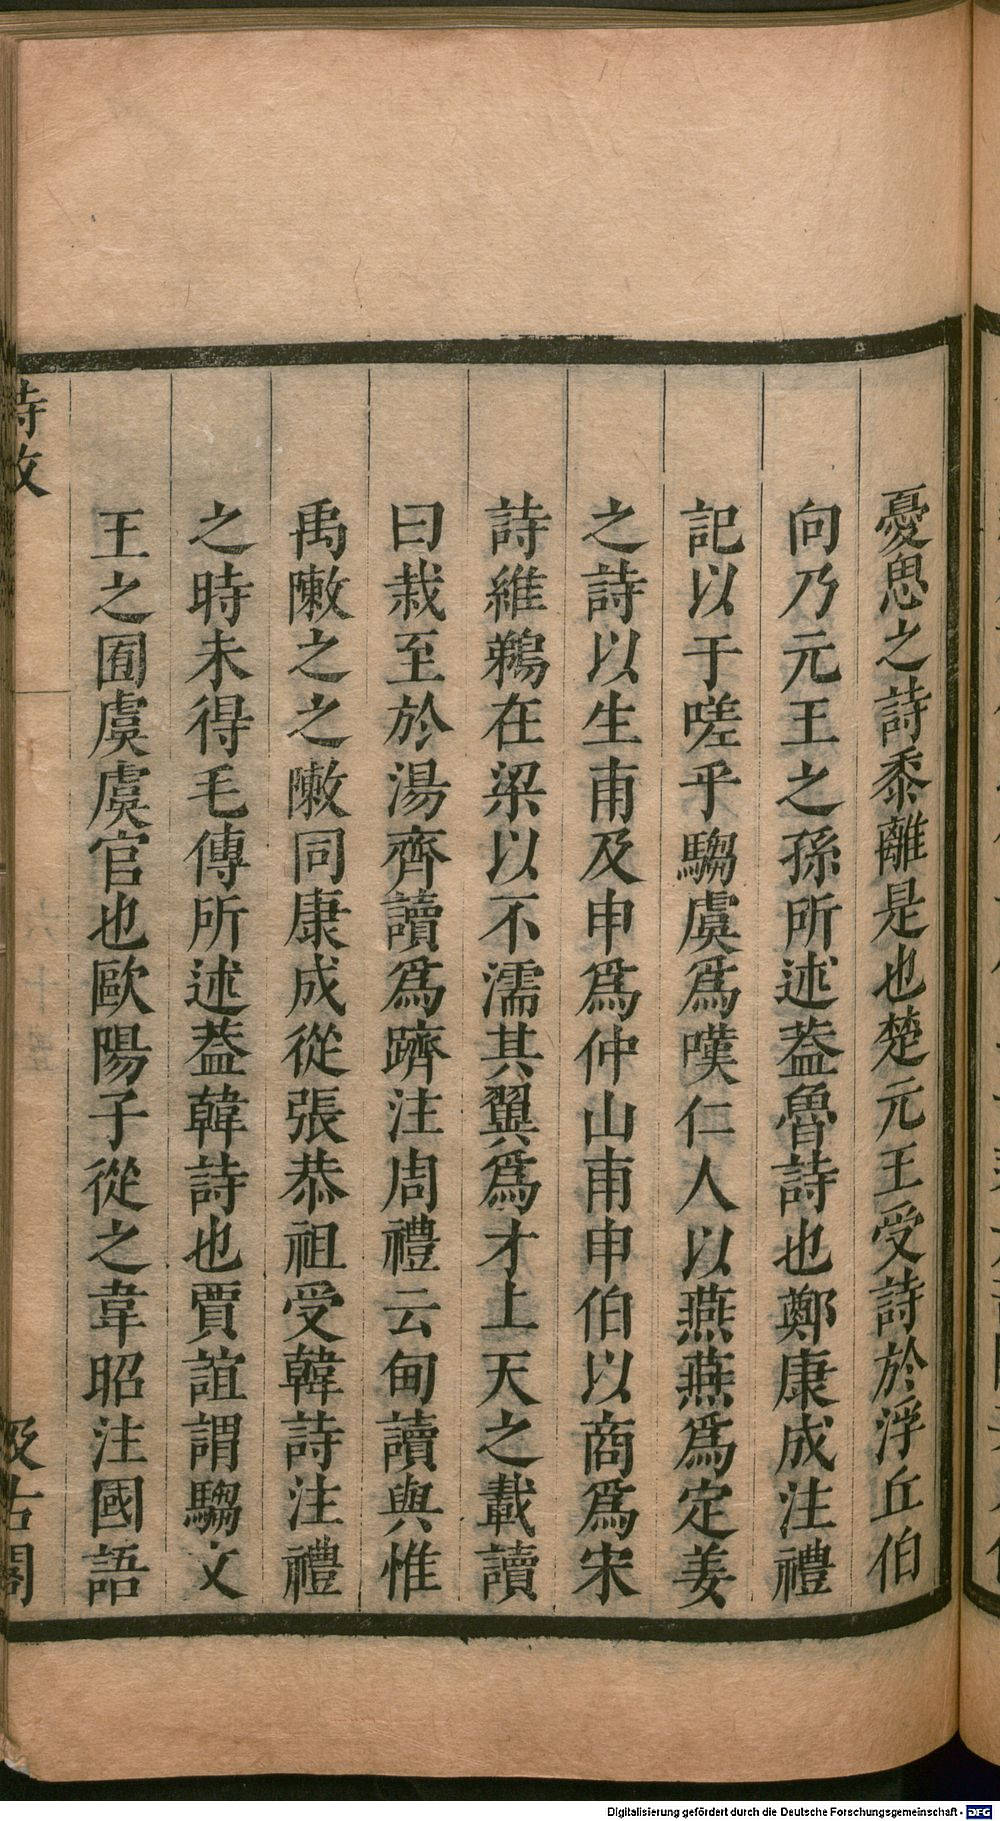 憂思之詩黍離是也楚元王受詩於浮丘伯
向乃元王之孫所述葢魯詩也鄭康成注禮
記以于嗟乎騶虞爲嘆仁人以燕燕爲定姜
之詩以生甫及申爲仲山甫申伯以商爲宋
詩維鵜在梁以不濡其翼爲才上天之載讀
曰栽至於湯齊讀爲躋注周禮云甸讀與惟
禹敶之之敶同康成從張恭祖受韓詩注禮
之時未得毛傳所述葢韓詩也賈誼謂騶文
王之囿虞虞官也歐陽子從之韋昭注國語
詩攷
汲古閣
Digitalisierung gefördert durch die Deutsche Forschungsgemeinschaft - DFG